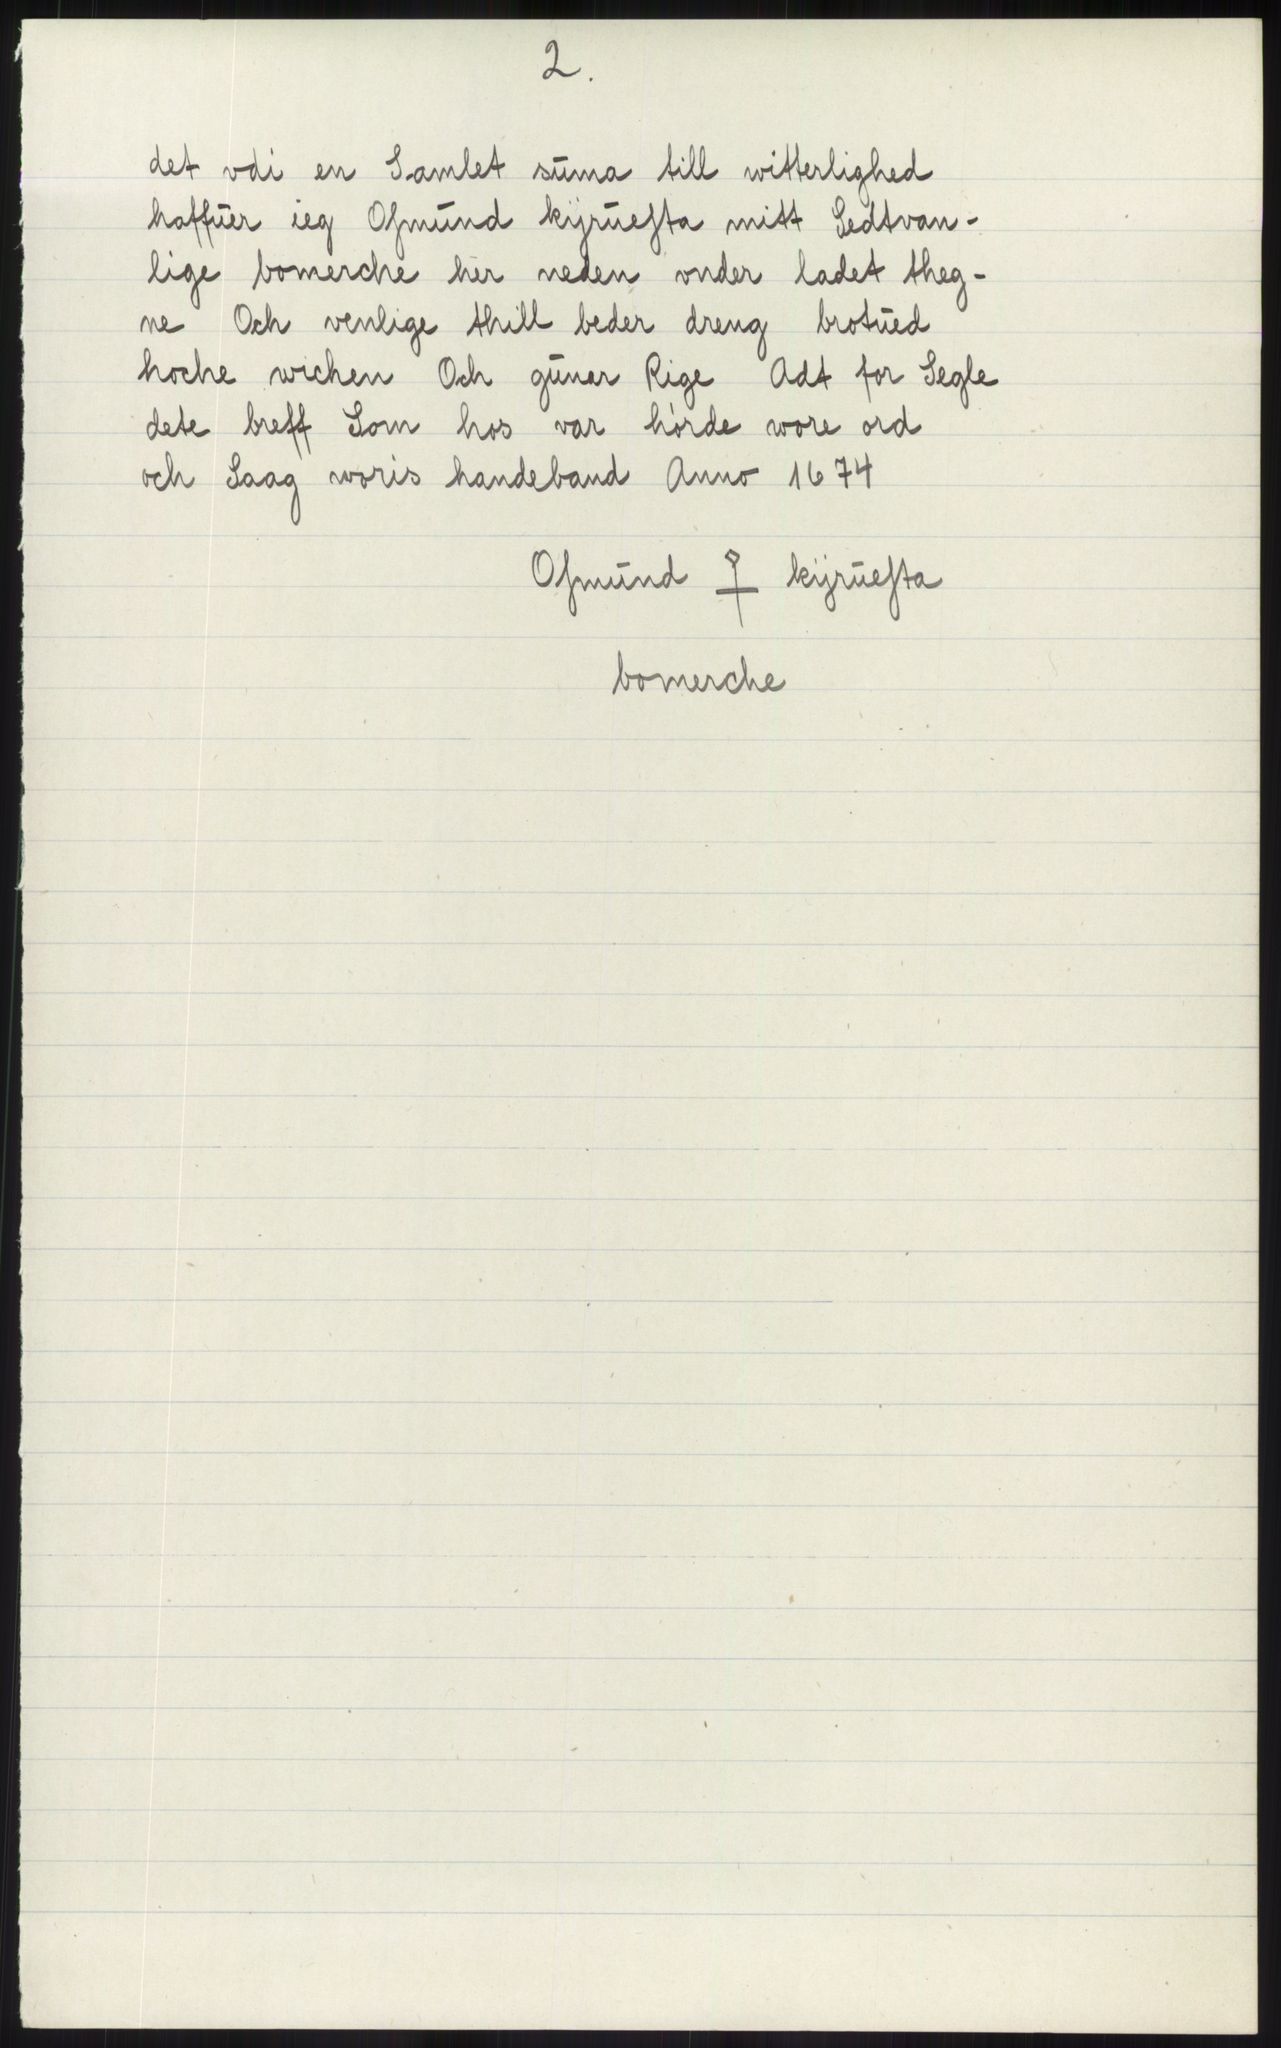 2.
det vdi en Samlet sūma till witterlighed
haffūer ieg Osmūnd kÿrūesta mitt Sedtvan-
lige bomerche her neden vnder ladet theg-
ne Och venlige thill beder dreng brotūed
hoche wichen Och gūner Rige Adt for Segle
dete breff Som hos var hörde wore ord
och Saag woris handeband Anno 1674
Osmūnd kÿrūesta
bomerche